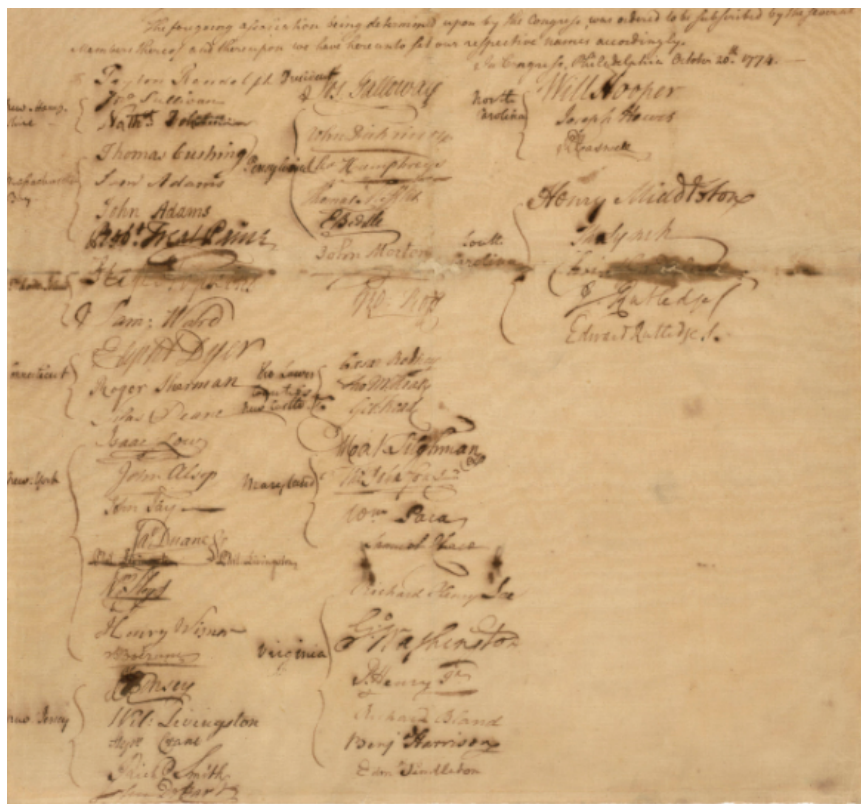 The foregoing association being determined upon by the Congress, was ordered to be subscribed by the several
Members thereof and thereupon we have hereunto set our respective names accordingly.
In Congress, Philadelphia October 20th 1774.
Peyton Randolph President
Jno Sullivan
Nathl
Thomas Cushing
Sam Adams
John Adams
Robt Treat Paine
Sam: Ward
Elipht Dyer
Roger Sherman
Silas Deane
Isaac Low
New-York
John Alsop
John Jay
Jas Duane
Phil Livingston
Wm Floyd
Henry Wisner
New Jersey
Wil: Livingston
Step Crane
Richd Smith
Pensylvania
Jos. Galloway
John Dickinson
Chs Humphreys
Thomas Mifflin
E Biddle
John Morton
Geo: Ross
The Lower
Counties
New Castle
Cesar Rodney
Tho M:Kean
Geo Read
Maryland
Mat Tilghman
Ths Johnson Junr
Wm Paca
Samuel Chase
Virginia
Richard Henry Lee
Go Washington
P. Henry Jr
Richard Bland
Benj Harrison
Edmd Pendleton
North
Carolina
Will Hooper
Joseph Hewes
R Caswell
South
Carolina
Henry Middleton
Tho Lynch
J Rutledge
Edward Rutledge